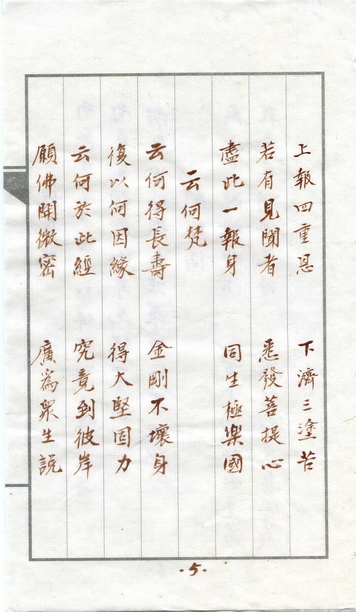 上報四重恩　下濟三塗苦
若有見聞者　悉發菩提心
盡此一報身　同生極樂國
云何梵
云何得長壽　金剛不壞身
復以何因緣　得大堅固力
云何於此經　究竟到彼岸
願佛開微密　廣為眾生說
·5·